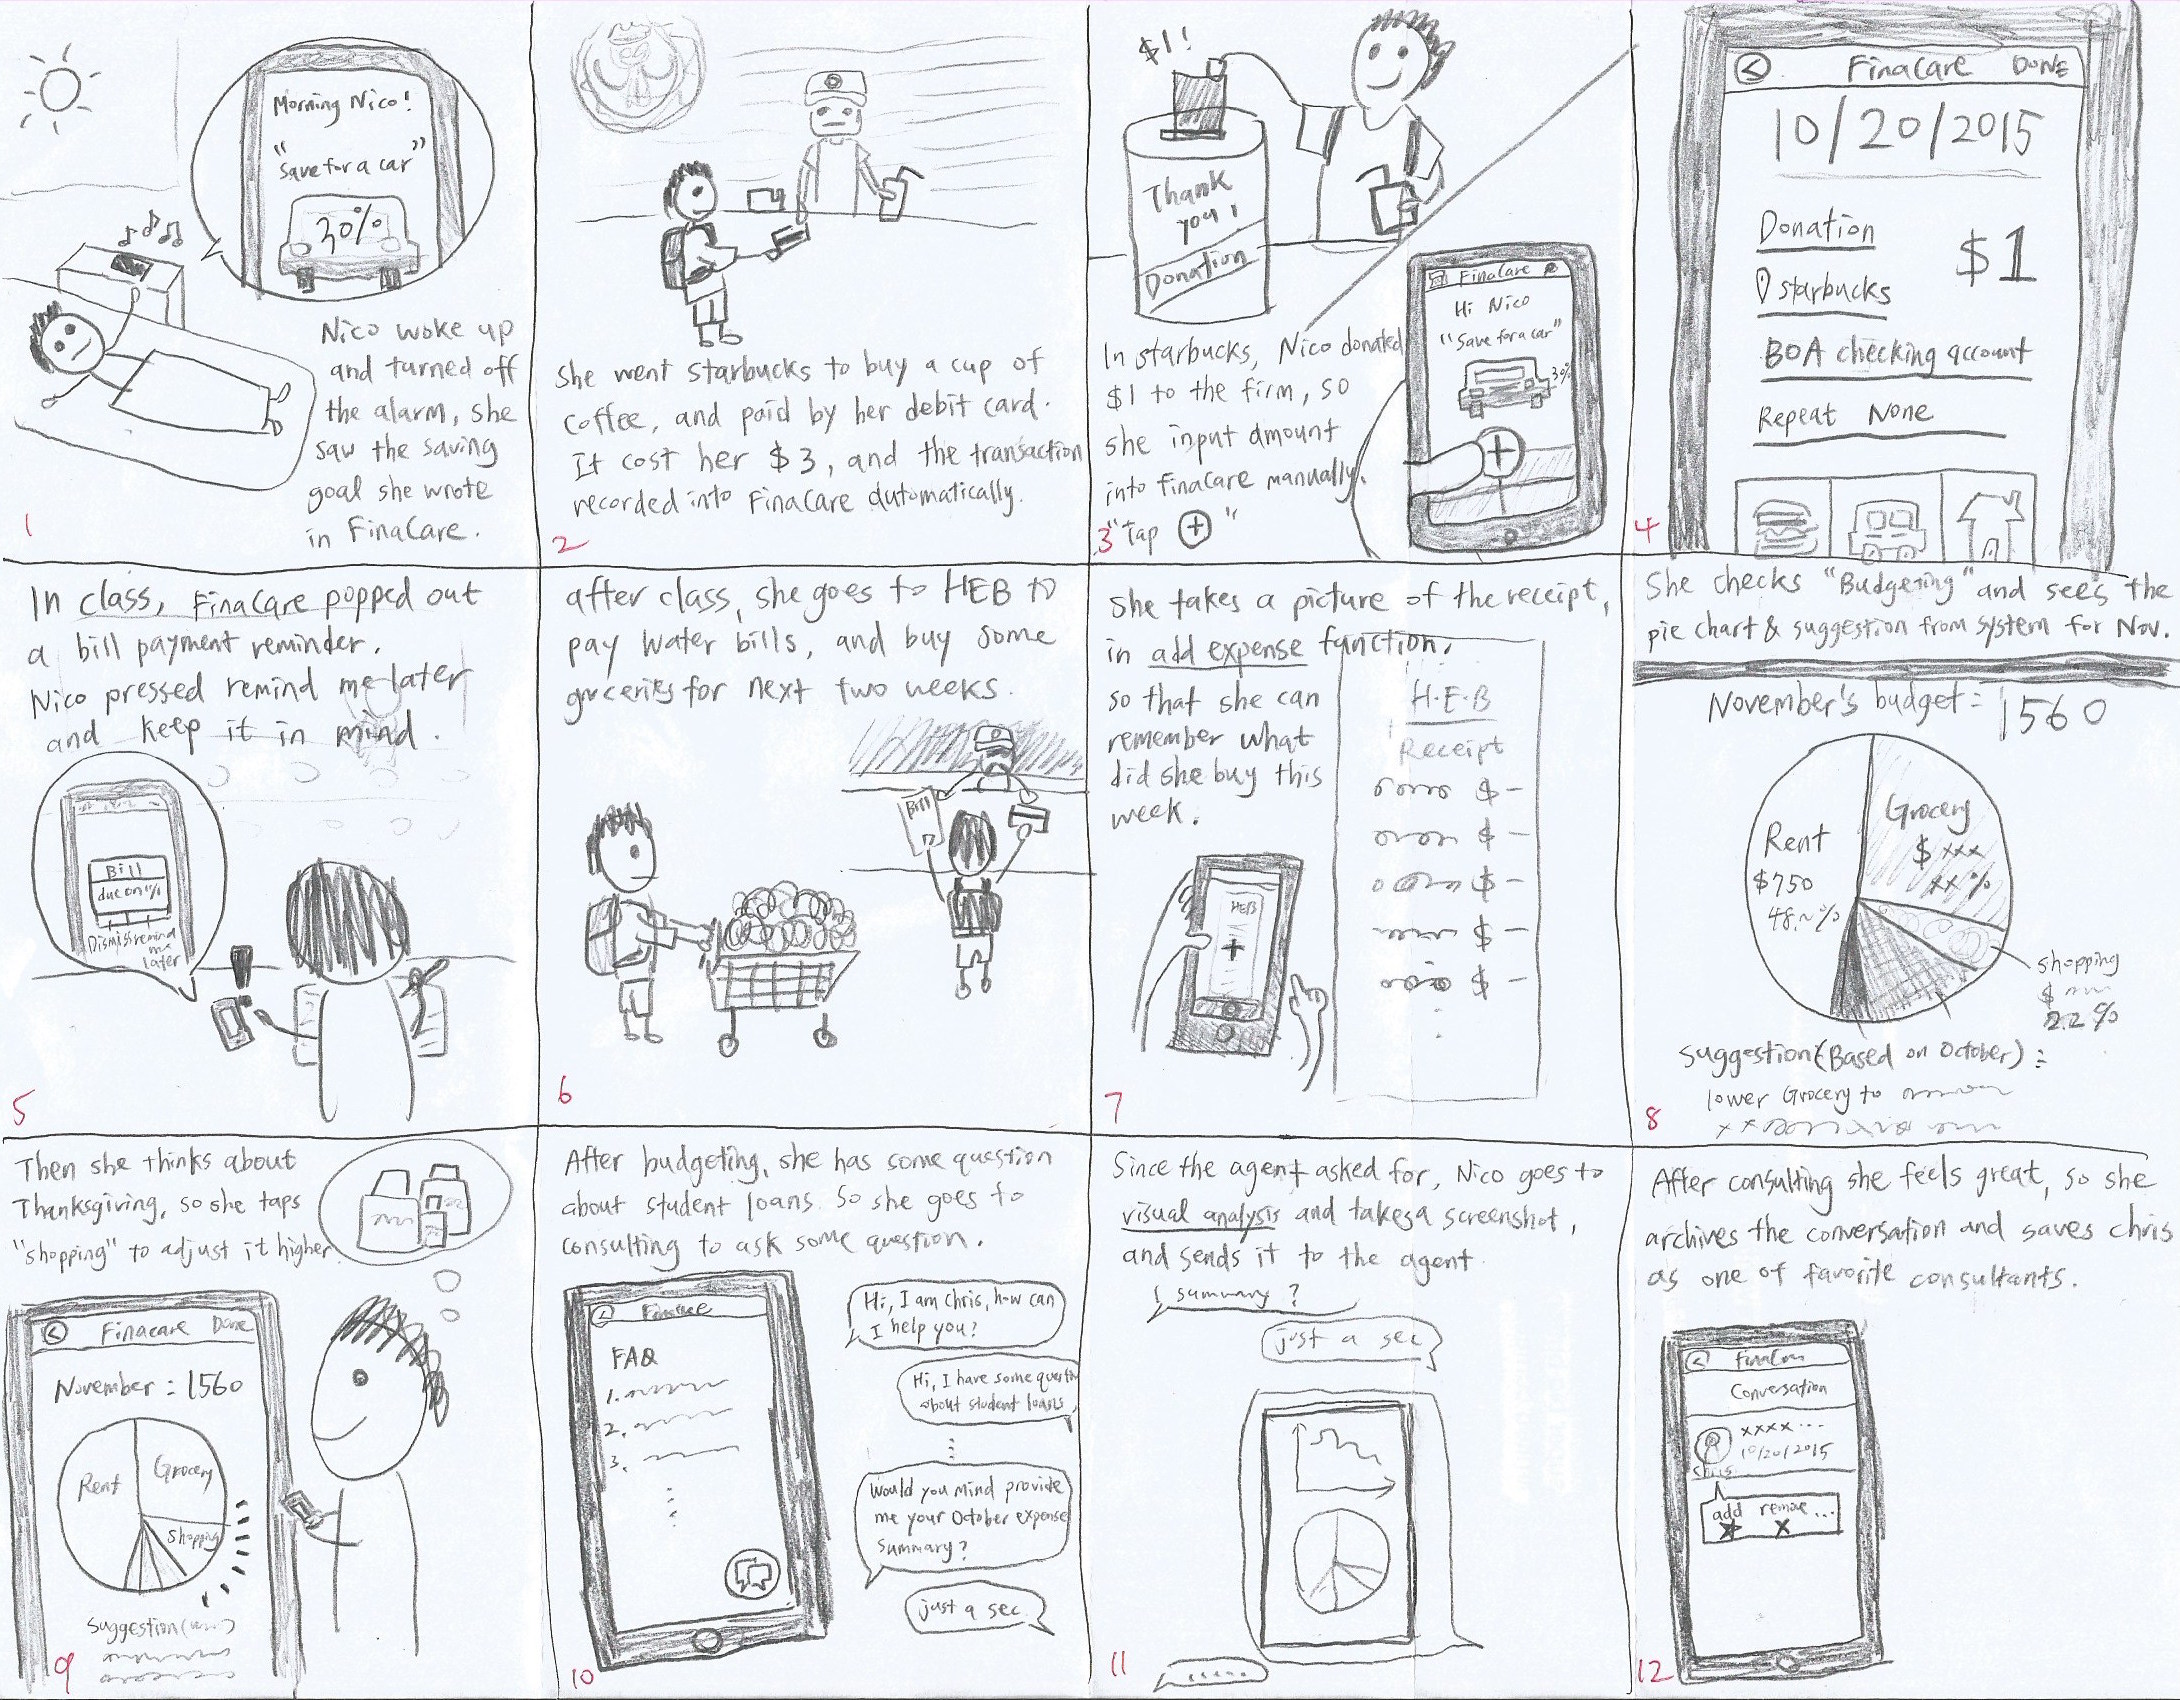 Morning Nico!
"Save for a car"
30%
Nico woke up
and turned off
the alarm, she
saw the saving
goal she wrote
in FinaCare.
1
She went starbucks to buy a cup of
coffee, and paid by her debit card.
It cost her $3, and the transaction
recorded into FinaCare automatically.
2
$1!
Thank
you!
Donation
In starbucks, Nico donated
$1 to the firm, so
she input amount
into finacare manually.
"Tap + "
FinaCare
Hi Nico
"Save for a car"
30%
3
FinaCare DONE
10/20/2015
Donation
$1
starbucks
BOA checking account
Repeat None
4
In class, FinaCare popped out
a bill payment reminder.
Nico pressed remind me later
and keep it in mind.
Bill
due on
Dismiss remind
me
later
5
after class, she goes to HEB to
pay water bills, and buy some
groceries for next two weeks.
Bill
6
She takes a picture of the receipt,
in add expense function,
so that she can
remember what
did she buy this
week.
H.E.B
Receipt
$ -
$ -
$ -
$ -
$ -
HEB
+
7
She checks "Budgeting" and sees the
pie chart & suggestion from system for Nov.
November's budget = 1560
Rent
$750
48.~%
Grocery
$ xxx
xx %
shopping
$
2.2 %
Suggestion (Based on October) :
lower Grocery to
8
Then she thinks about
Thanksgiving, so she taps
"shopping" to adjust it higher.
Finacare Done
November : 1560
Rent
Grocery
Shopping
Suggestion
9
After budgeting, she has some question
about student loans. So she goes to
consulting to ask some question.
FAQ
1.
2.
3.
Hi, I am Chris, how can
I help you?
Hi, I have some
about student loans,
Would you mind provide
me your October expense
summary?
just a sec
10
Since the agent asked for, Nico goes to
visual analysis and takes a screenshot,
and sends it to the agent.
summary ?
just a sec
......
11
After consulting she feels great, so she
archives the conversation and saves chris
as one of favorite consultants.
Conversation
xxxx ...
10/20/2015
Chris
add remove ...
12